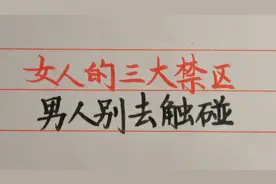 女人的三大禁区
男人别去触碰